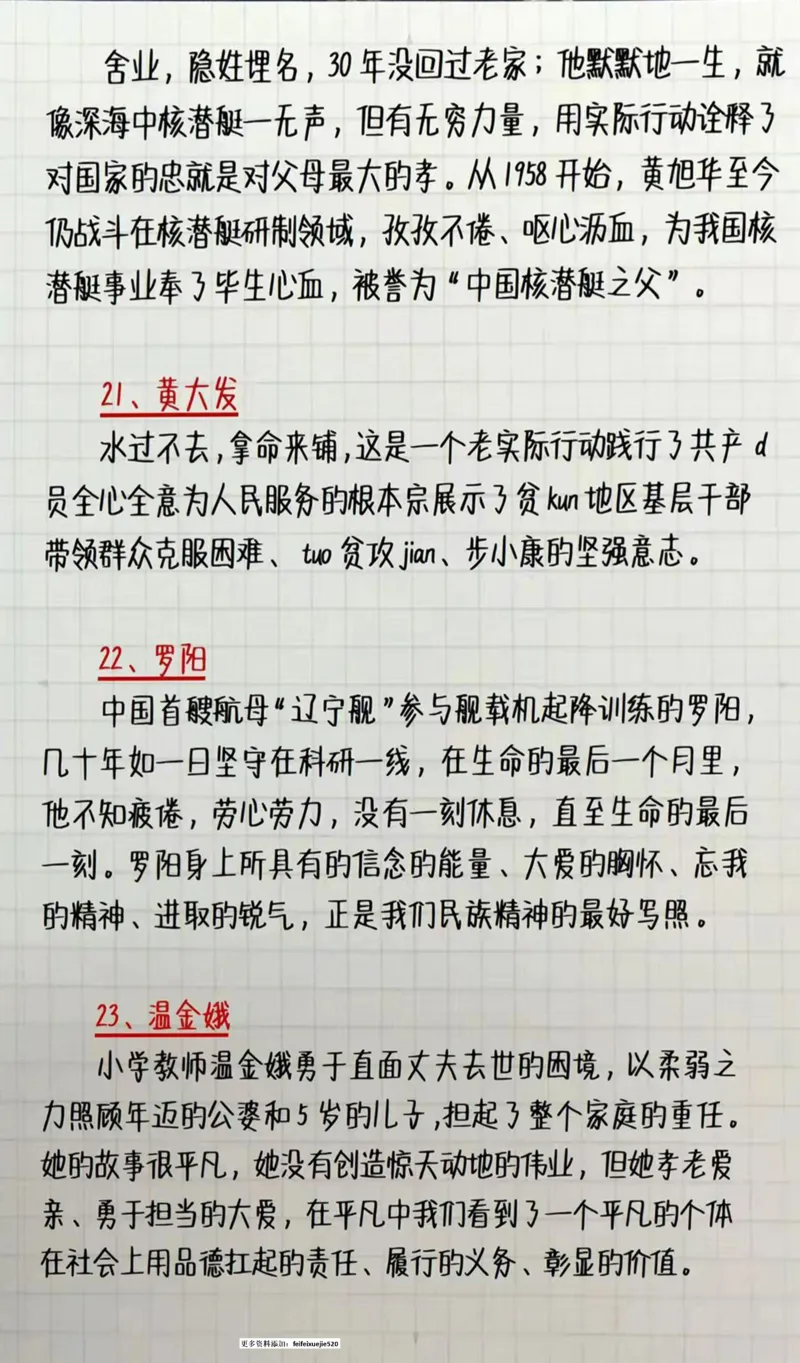 舍业，隐姓埋名，30年没回过老家；他默默地一生，就
像深海中核潜艇一无声，但有无穷力量，用实际行动诠释了
对国家的忠就是对父母最大的孝。从1958开始，黄旭华至今
仍战斗在核潜艇研制领域，孜孜不倦、呕心沥血，为我国核
潜艇事业奉了毕生心血，被誉为“中国核潜艇之父”。
21、黄大发
水过不去,拿命来铺,这是一个老实际行动践行了共产d
员全心全意为人民服务的根本宗展示了贫kun地区基层干部
带领群众克服困难、tuo贫攻jian、步小康的坚强意志。
22、罗阳
中国首艘航母“辽宁舰”参与舰载机起降训练的罗阳，
几十年如一日坚守在科研一线，在生命的最后一个月里，
他不知疲倦，劳心劳力，没有一刻休息，直至生命的最后
一刻。罗阳身上所具有的信念的能量、大爱的胸怀、忘我
的精神、进取的锐气，正是我们民族精神的最好写照。
23、温金娥
小学教师温金娥勇于直面丈夫去世的困境，以柔弱之
力照顾年迈的公婆和5岁的儿子,担起了整个家庭的重任。
她的故事很平凡，她没有创造惊天动地的伟业，但她孝老爱
亲、勇于担当的大爱，在平凡中我们看到了一个平凡的个体
在社会上用品德扛起的责任、履行的义务、彰显的价值。
更多资料添加：feifeixuejie520